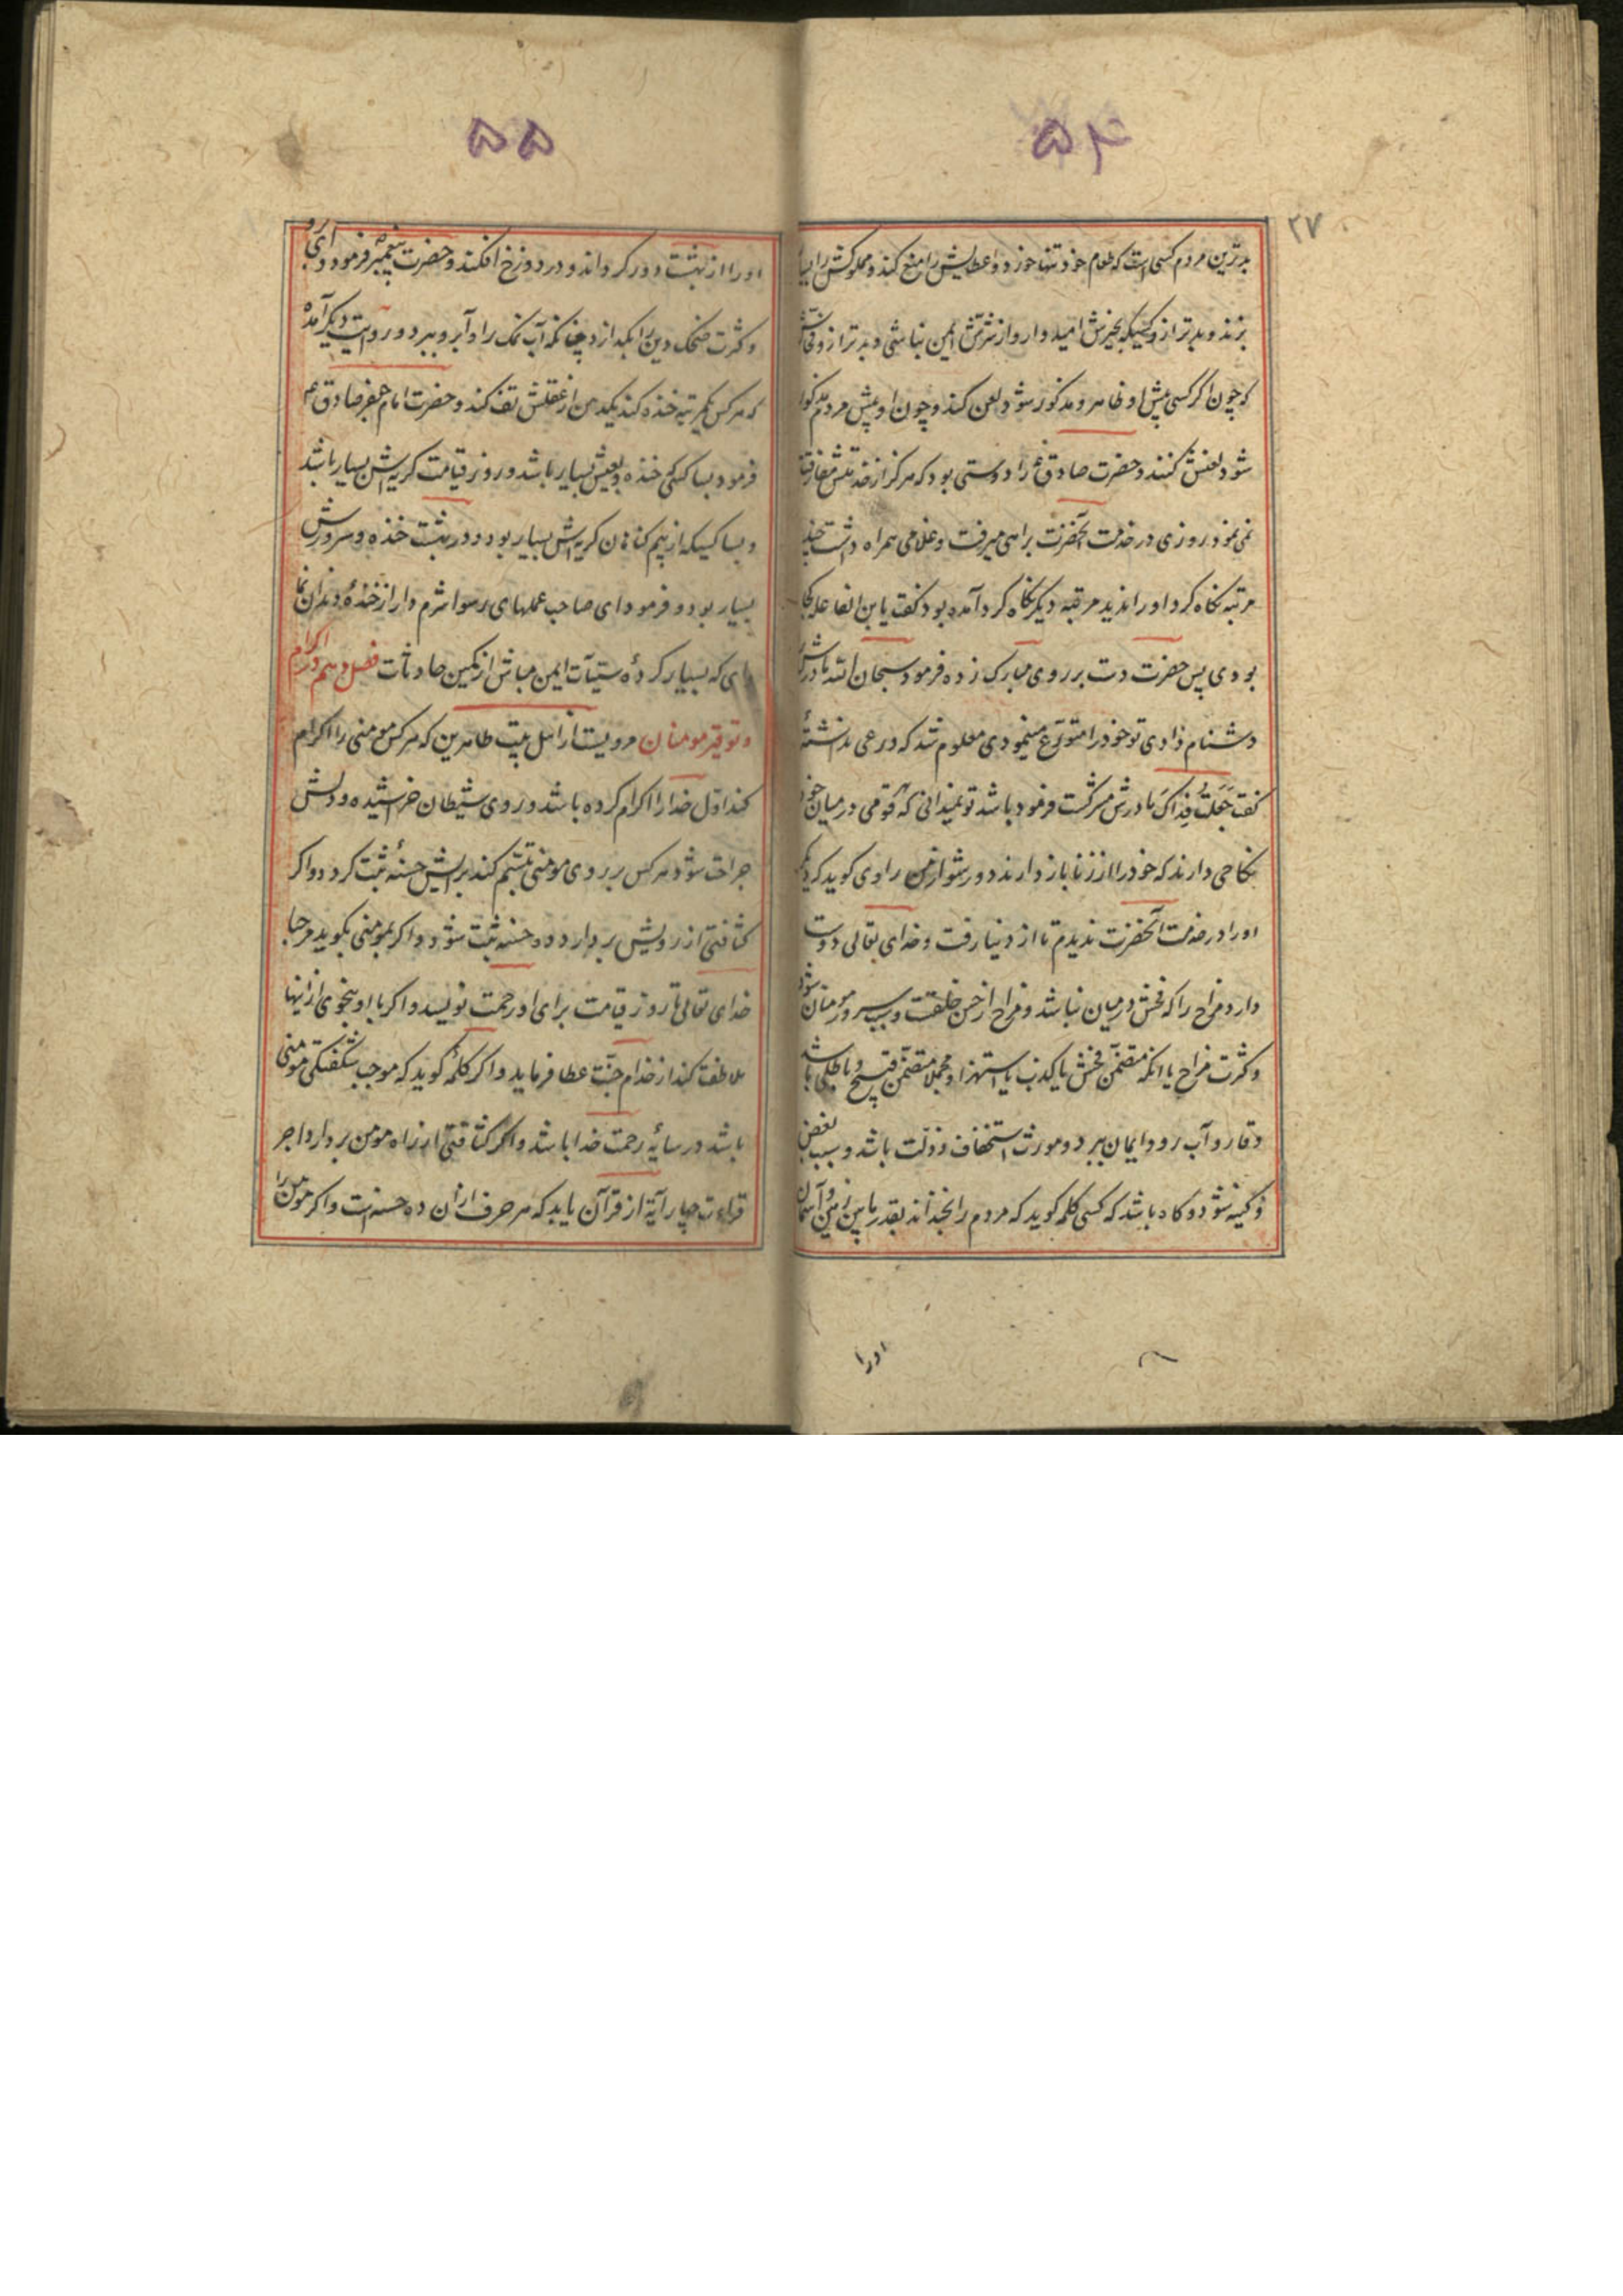 ۵۴
۲۷
بدترین مردم کسی است که طعام خود تنها خورد و عطایش را منع کند و مملوکش را
بزند و بدتر ازو کسیکه بخیرش امید وار و از شرش ایمن نباشی و بدتر ازو
که چون اگر کسی پیش او ظاهر و مذکور شود لعن کند و چون او پیش مردم مذکور
شود لعنش کنند و حضرت صادق ع را دوستی بود که هرگز از خدمتش مفارقت
نمی نمود روزی در خدمت آنحضرت براهی میرفت و غلامی همراه داشت
مرتبه نکاه کرد او را ندید مرتبه دیکر نکاه کرد آمده بود کفت یا بن الفاعله کجا
بودی پس حضرت دست بر روی مبارک زده فرمود سبحان الله مادرش را
دشنام دادی تو خود را متورع مینمودی معلوم شد که ورعی نداشته
کفت جعلت فداک مادرش مشرکست فرمود باشد تو نمیدانی که هر قومی در میان خود
نکاحی دارند که خود را از زنا باز دارند دور شو از من راوی کوید که دیکر
اورا در خدمت آنحضرت ندیدم تا از دنیا رفت و خدای تعالی دوست
دارد مزاح را که فحش در میان نباشد و مزاح از حسن خلقست و سبب سرور مومنان شود
و کثرت مزاح یا انکه متضمن فحش یا کذب یا استهزا و مجملا متضمن قبیح و باطلی باشد
وقار و آب رو و ایمان ببرد و مورث استخفاف و ذلت باشد و سبب بغض
و کینه شود و کاه باشد که کسی کلمه کوید که مردم را بخنداند بقدر مابین زمین و آسمان
اورا
۵۵
اورا از بهشت دور کرداند و در دوزخ افکند و حضرت پیغمبر فرمود
و کثرت ضحک دین را بکدازد چنانکه آب نمک را و آبرو ببرد و در روایت دیکر آمده
که هر کس یکمرتبه خنده کند یکدهن از عقلش تف کند و حضرت امام جعفر صادق ع
فرمود بسا کسی که خنده و لعبش بسیار باشد و روز قیامت کریه اش بسیار باشد
و بسا کسیکه از بیم کناهان کریه اش بسیار بود و در بهشت خنده و سرورش
بسیار بود و فرمود ای صاحب عملهای رسوا شرم دار از خندهٔ دندان نما
ای که بسیار کردهٔ سیئات ایمن مباش از کمین حادثات فصل دهم در اکرام
و توقیر مومنان مرویست از اهل بیت طاهرین که هر کس مومنی را اکرام
کند اول خدا را اکرام کرده باشد و روی شیطان خراشیده و دلش
جراحت شود هر کس بر روی مومنی تبسم کند برایش حسنهٔ ثبت کردد و اکر
کثافتی از رویش بردارد ده حسنه ثبت شود و اکر بمومنی بکوید مرحبا
خدای تعالی تا روز قیامت برای او رحمت نویسد و اکر با او بنحوی از اینها
ملاطفت کند از خدام جنت عطا فرماید و اکر کلمهٔ کوید که موجب شکفتکی مومنی
باشد در سایهٔ رحمت خدا باشد و اکر کثافتی از راه مومن بردارد اجر
قراءت چهار آیهٔ از قرآن یابد که هر حرف ازان ده حسنه است و اکر مومن را